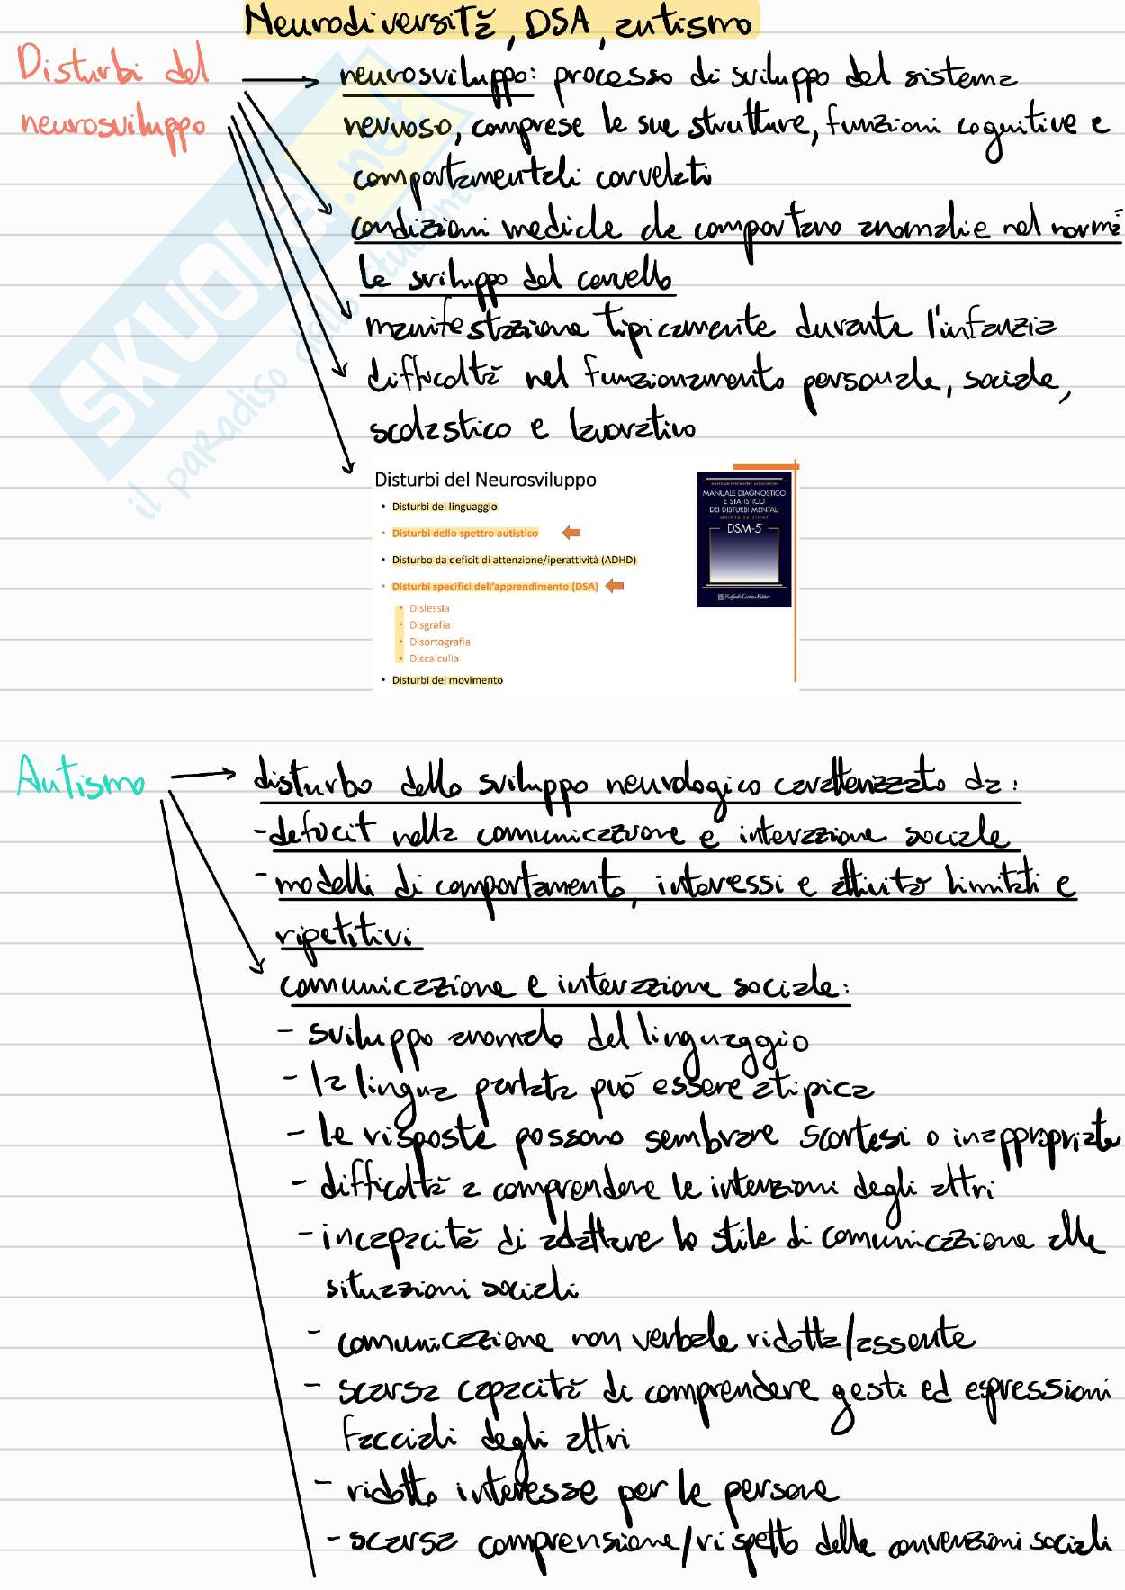 Neurodiversità, DSA, autismo
Disturbi del
neurosviluppo
neurosviluppo: processo di sviluppo del sistema
nervoso, comprese le sue strutture, funzioni cognitive e
comportamentali correlati
condizioni mediche che comportano anomalie nel norma
le sviluppo del cervello
manifestazione tipicamente durante l'infanzia
difficoltà nel funzionamento personale, sociale,
scolastico e lavorativo
Disturbi del Neurosviluppo
• Disturbi del linguaggio
• Disturbi dello spettro autistico
• Disturbo da deficit di attenzione/iperattività (ADHD)
• Disturbi specifici dell'apprendimento (DSA)
• Dislessia
• Disgrafia
• Disortografia
• Discalculia
• Disturbi del movimento
MANUALE DIAGNOSTICO
E STATISTICO
DEI DISTURBI MENTALI
DSM-5
Raffaello Cortina Editore
SKUOLA.net
il paradiso dello studente
Autismo
disturbo dello sviluppo neurologico caratterizzato da:
- deficit nella comunicazione e interazione sociale
- modelli di comportamento, interessi e attività limitati e
ripetitivi
comunicazione e interazione sociale:
- sviluppo anomalo del linguaggio
- la lingua parlata può essere atipica
- le risposte possono sembrare scortesi o inappropriate
- difficoltà a comprendere le intenzioni degli altri
- incapacità di adattare lo stile di comunicazione alle
situazioni sociali
- comunicazione non verbale ridotta/assente
- scarsa capacità di comprendere gesti ed espressioni
facciali degli altri
- ridotto interesse per le persone
- scarsa comprensione/rispetto delle convenzioni sociali